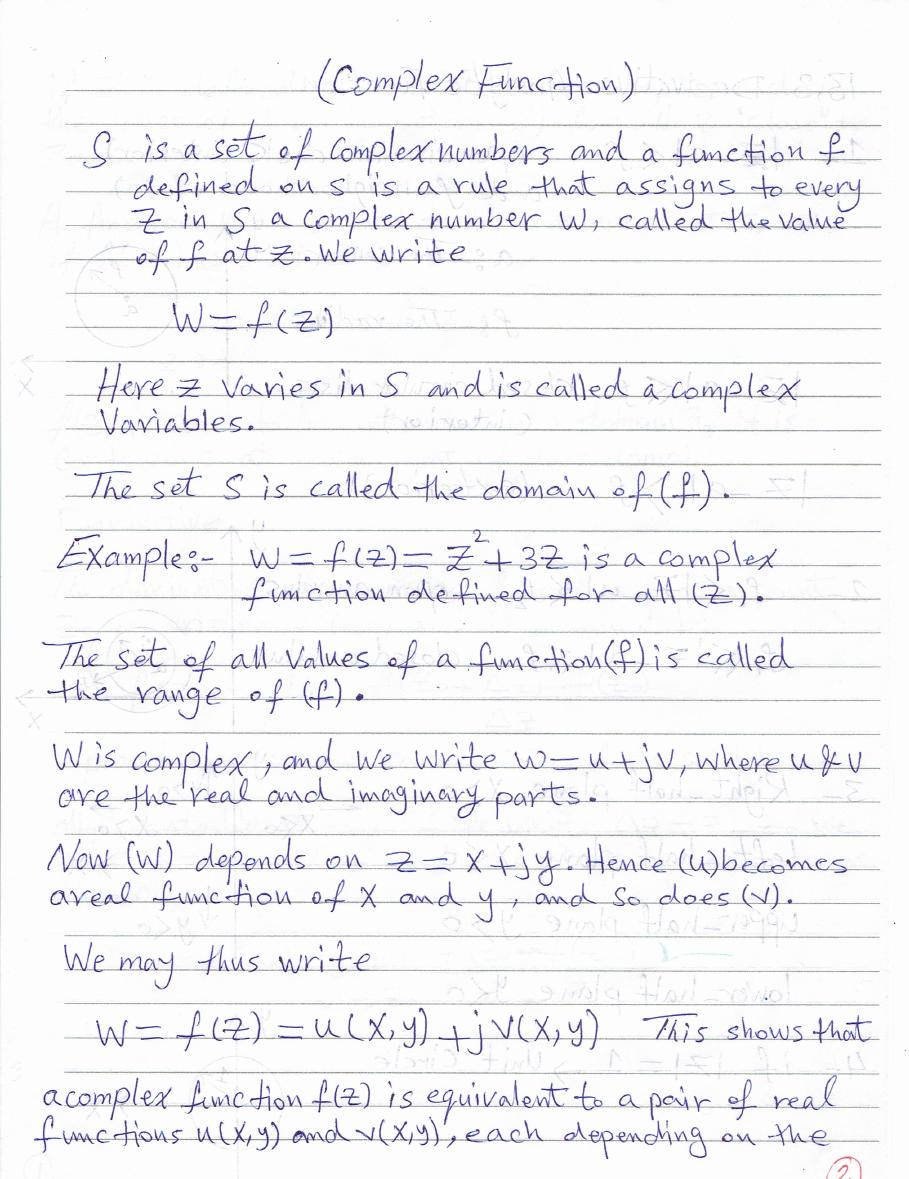 (Complex Function)
S is a set of complex numbers and a function f
defined on s is a rule that assigns to every
Z in S a complex number W, called the value
of f at z. We write
W = f(z)
Here z varies in S and is called a complex
Variables.
The set S is called the domain of (f).
Example:- W = f(z) = z² + 3z is a complex
function defined for all (z).
The set of all values of a function (f) is called
the range of (f).
W is complex, and we write w = u + jv, where u & v
are the real and imaginary parts.
Now (W) depends on z = x + jy. Hence (u) becomes
a real function of x and y, and so does (v).
We may thus write
W = f(z) = u(x,y) + j v(x,y) This shows that
a complex function f(z) is equivalent to a pair of real
functions u(x,y) and v(x,y), each depending on the
2